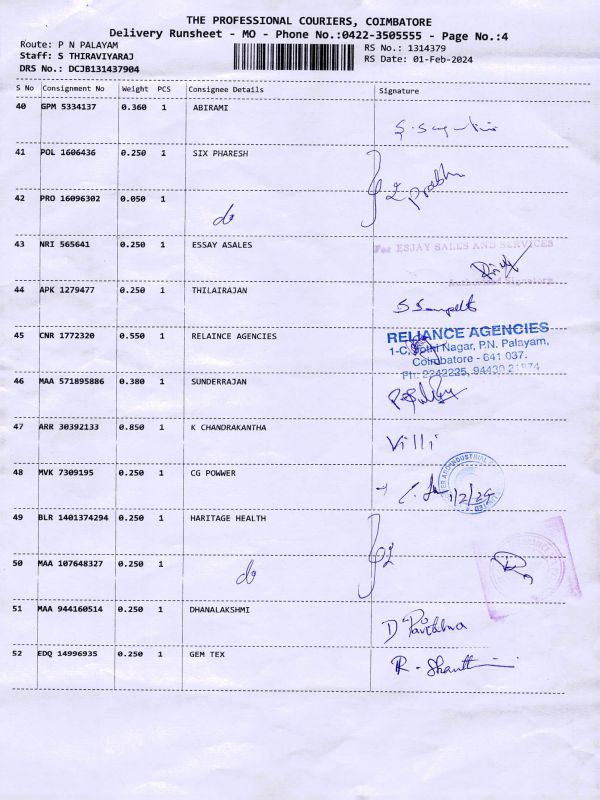 THE PROFESSIONAL COURIERS, COIMBATORE
Delivery Runsheet - MO - Phone No.:0422-3505555 - Page No.:4
Route: P N PALAYAM
RS No.: 1314379
Staff: S THIRAVIYARAJ
RS Date: 01-Feb-2024
DRS No.: DCJB131437904
S No Consignment No Weight PCS Consignee Details Signature
40 GPM 5334137 0.360 1 ABIRAMI
41 POL 1606436 0.250 1 SIX PHARESH
2 Prabhu
42 PRO 16096302 0.050 1
do
43 NRI 565641 0.250 1 ESSAY ASALES
For ESJAY SALES AND SERVICES
Authorised Signatory
44 APK 1279477 0.250 1 THILAIRAJAN
45 CNR 1772320 0.550 1 RELAINCE AGENCIES
RELIANCE AGENCIES
Nagar, P.N. Palayam,
Coimbatore - 641 037.
Ph: 2242225, 94430
46 MAA 571895886 0.380 1 SUNDERRAJAN
47 ARR 30392133 0.850 1 K CHANDRAKANTHA
Villi
48 MVK 7309195 0.250 1 CG POWWER
1/2/24
49 BLR 1401374294 0.250 1 HARITAGE HEALTH
2
50 MAA 107648327 0.250 1
do
51 MAA 944160514 0.250 1 DHANALAKSHMI
52 EDQ 14996935 0.250 1 GEM TEX
R. Shanthi